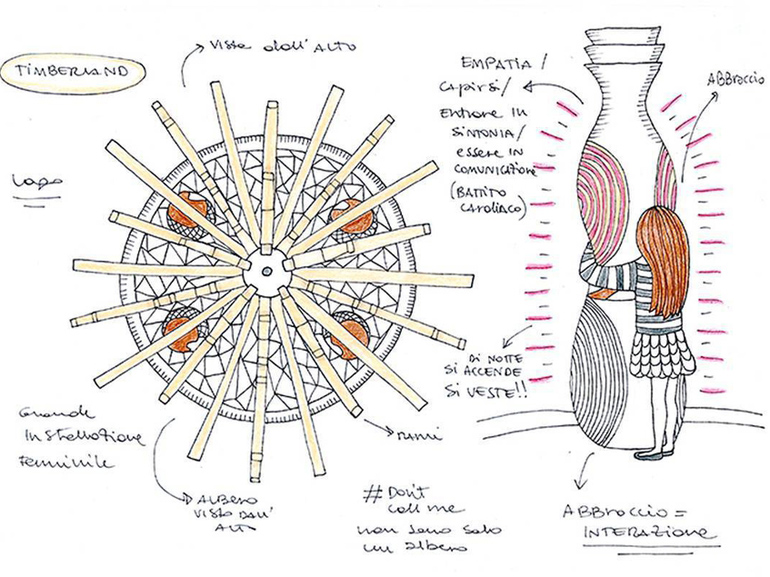 TIMBERLAND
VISTA dall'ALTO
EMPATIA /
CAPIRSI /
ENTRARE IN
SINTONIA /
ESSERE IN
COMUNICAZIONE
(BATTITO
CARDIACO)
ABBRACCIO
DI NOTTE
SI ACCENDE
SI VESTE!!
Grande
Installazione
Femminile
RAMI
ALBERO
VISTO DALL'
ALTO
# DON'T
call me
non sono solo
un albero
ABBRACCIO =
INTERAZIONE